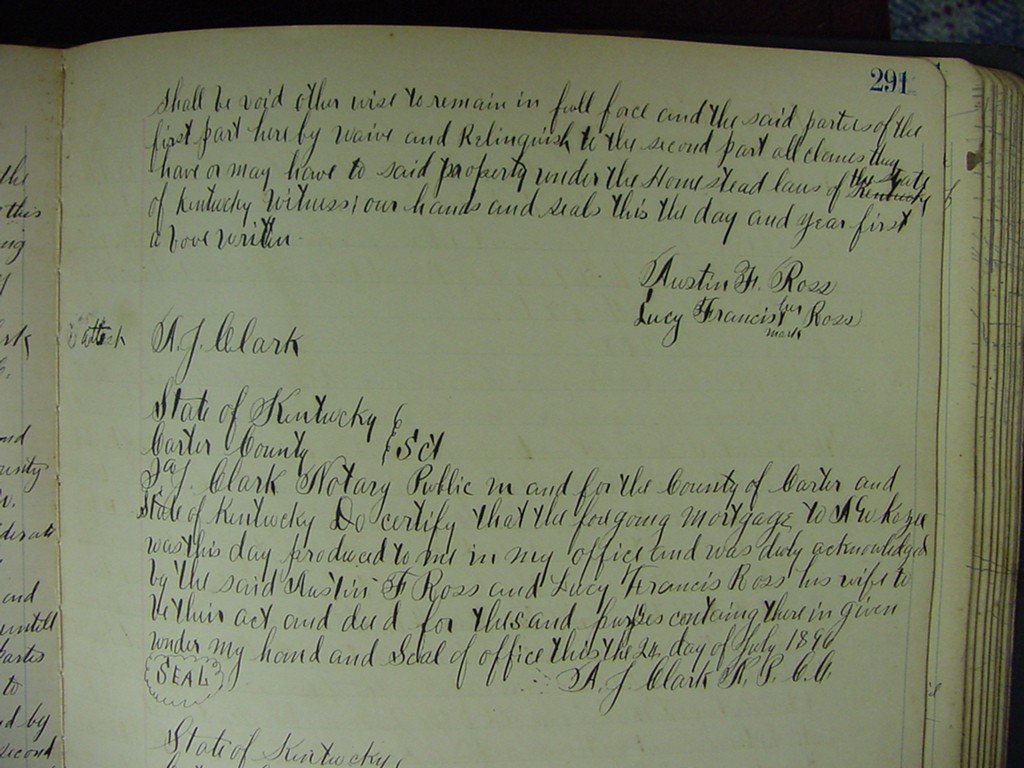 291
shall be void other wise to remain in full force and the said parties of the
first part here by waive and Relinquish to the second part all clames they
have or may have to said property under the Homestead laws of the State
of Kentucky Witness; our hands and seals this the day and year first
above written
Austin F. Ross
Lucy Francis her Ross
mark
Attest A. J. Clark
State of Kentucky
Carter County Sct
J Clark Notary Public in and for the County of Carter and
State of Kentucky Do certify that the foregoing Mortgage to
was this day produced to me in my office and was duly acknowledged
by the said Austin F Ross and Lucy Francis Ross his wife to
be their act and deed for the and containg there in given
under my hand and Seal of office this the 24 day of July 1890
SEAL
A. J. Clark N. P. C. C.
State of Kentucky
the
this
ng
y
and
untill
to
d by
second